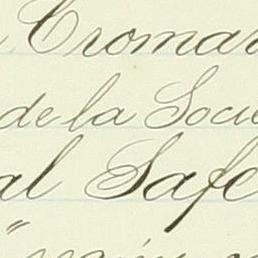 Cromar
de la Socie
al Safe